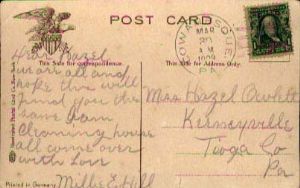 POST CARD
This Side for correspondence.
This Side for Address Only.
MAR
A M
1909
PA.
Dear Hazel
we are all and
hope this will
find you the
same I am
cleaning house
all come over
with Love
Millie E Hill
Miss Hazel
Kelseyville
Tioga Co
Pa
Printed in Germany